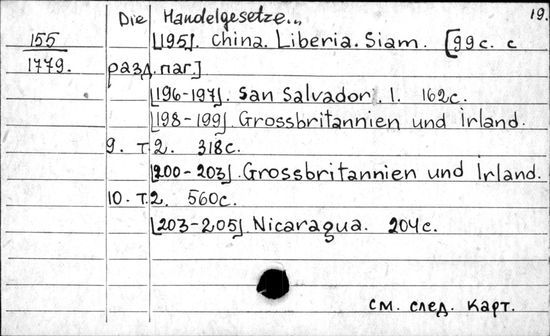 Die Handelgesetze... 19.
155 [195]. China. Liberia. Siam. [99с. с
1779. разд. паг.]
[196-197]. San Salvador. 1. 162с.
[198-199] Grossbritannien und Irland.
9. т.2. 318с.
[200-203]. Grossbritannien und Irland.
10. т.2. 560с.
[203-205] Nicaragua. 204с.
см. след. карт.